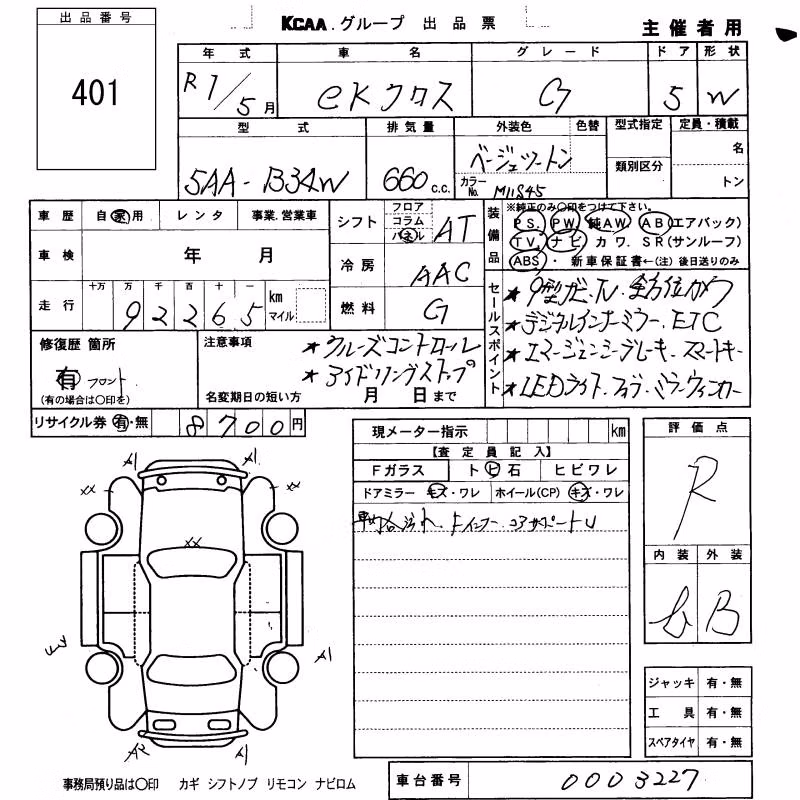 出品番号
401
KCAA.グループ 出品票
主催者用
年式 車名 グレード ドア 形状
R1/5月 eKクロス G 5 W
型式 排気量 外装色 色替 型式指定 定員・積載
5AA-B34W 660c.c. ベージュツートン 類別区分 名
カラーNo. M11S45 トン
車歴 自家用 レンタ 事業.営業車
シフト フロア コラム パネル AT
車検 年 月
冷房 AAC
走行 十万 万 千 百 十 一
92265 km マイル
燃料 G
装備品
※純正のみ〇印をつけて下さい。
PS. PW. 純AW. AB(エアバック)
TV. ナビ カワ. SR(サンルーフ)
ABS・ 新車保証書←(注)後日送りのみ
セールスポイント
★9型ナビ.TV.全方位カメラ
★デジタルインナーミラー.ETC
★エマージェンシーブレーキ.スマートキー
★LEDライト.フォグ.ミラーウィンカー
修復歴 箇所
有 フロント
(有の場合は〇印を)
注意事項
★クルーズコントロール
★アイドリングストップ
名変期日の短い方 月 日まで
リサイクル券 有・無 8700円
現メーター指示 km
【査定員記入】
Fガラス トビ石 ヒビワレ
ドアミラー キズ・ワレ ホイール(CP) キズ・ワレ
コアサポート
評価点
R
内装 外装
b B
A1 A1
XX XX
XX
A1
A1
ジャッキ 有・無
工具 有・無
スペアタイヤ 有・無
事務局預り品は〇印 カギ シフトノブ リモコン ナビロム
車台番号 0003227